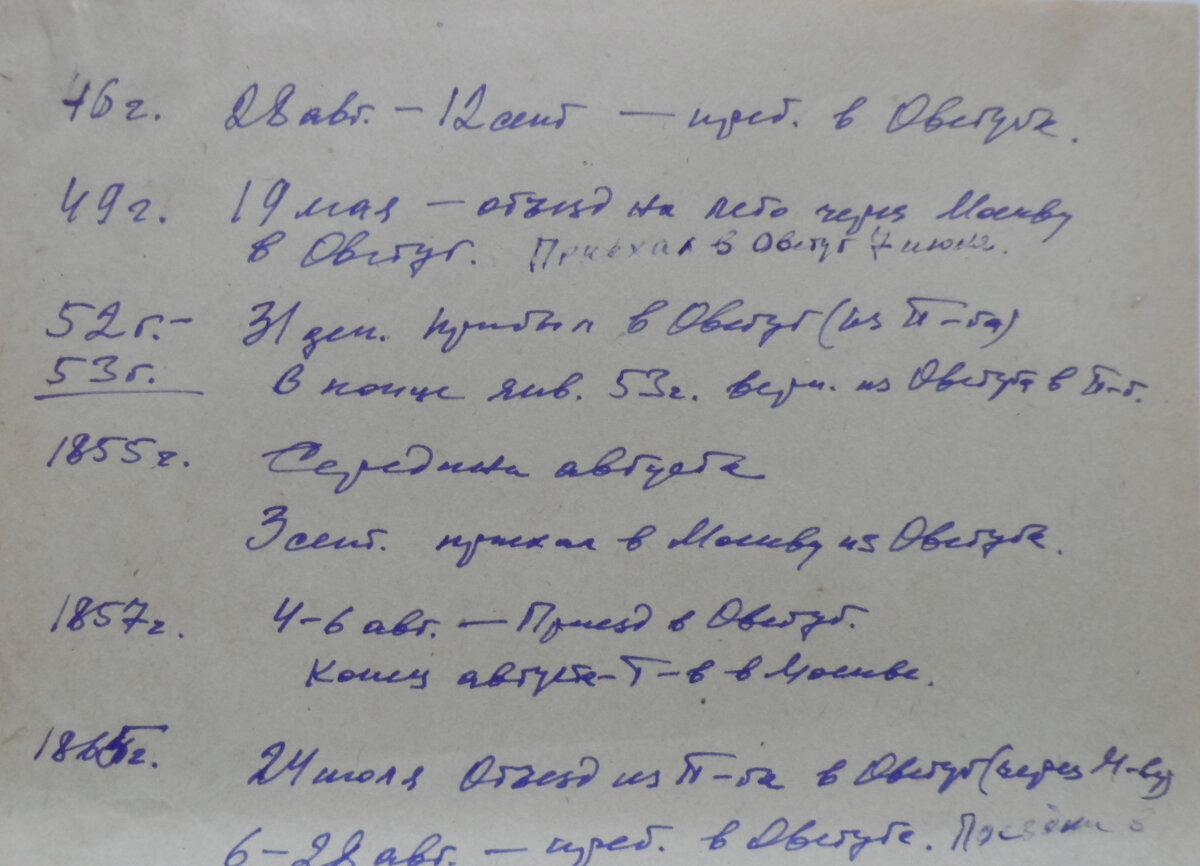 46 г. 28 авг. — 12 сент — преб. в Овстуге.
49 г. 19 мая — отъезд на лето через Москву
в Овстуг. Приехал в Овстуг 7 июня.
52 г. - 31 дек. прибыл в Овстуг (из П-га)
53 г. В конце янв. 53 г. верн. из Овстуга в П-г.
1855 г. Середина августа
3 сент. приехал в Москву из Овстуга.
1857 г. 4-6 авг. — Приезд в Овстуг.
Конец августа - Т-в в Москве.
24 июля Отъезд из П-га в Овстуг (через М-ву)
6-28 авг. — преб. в Овстуге. в